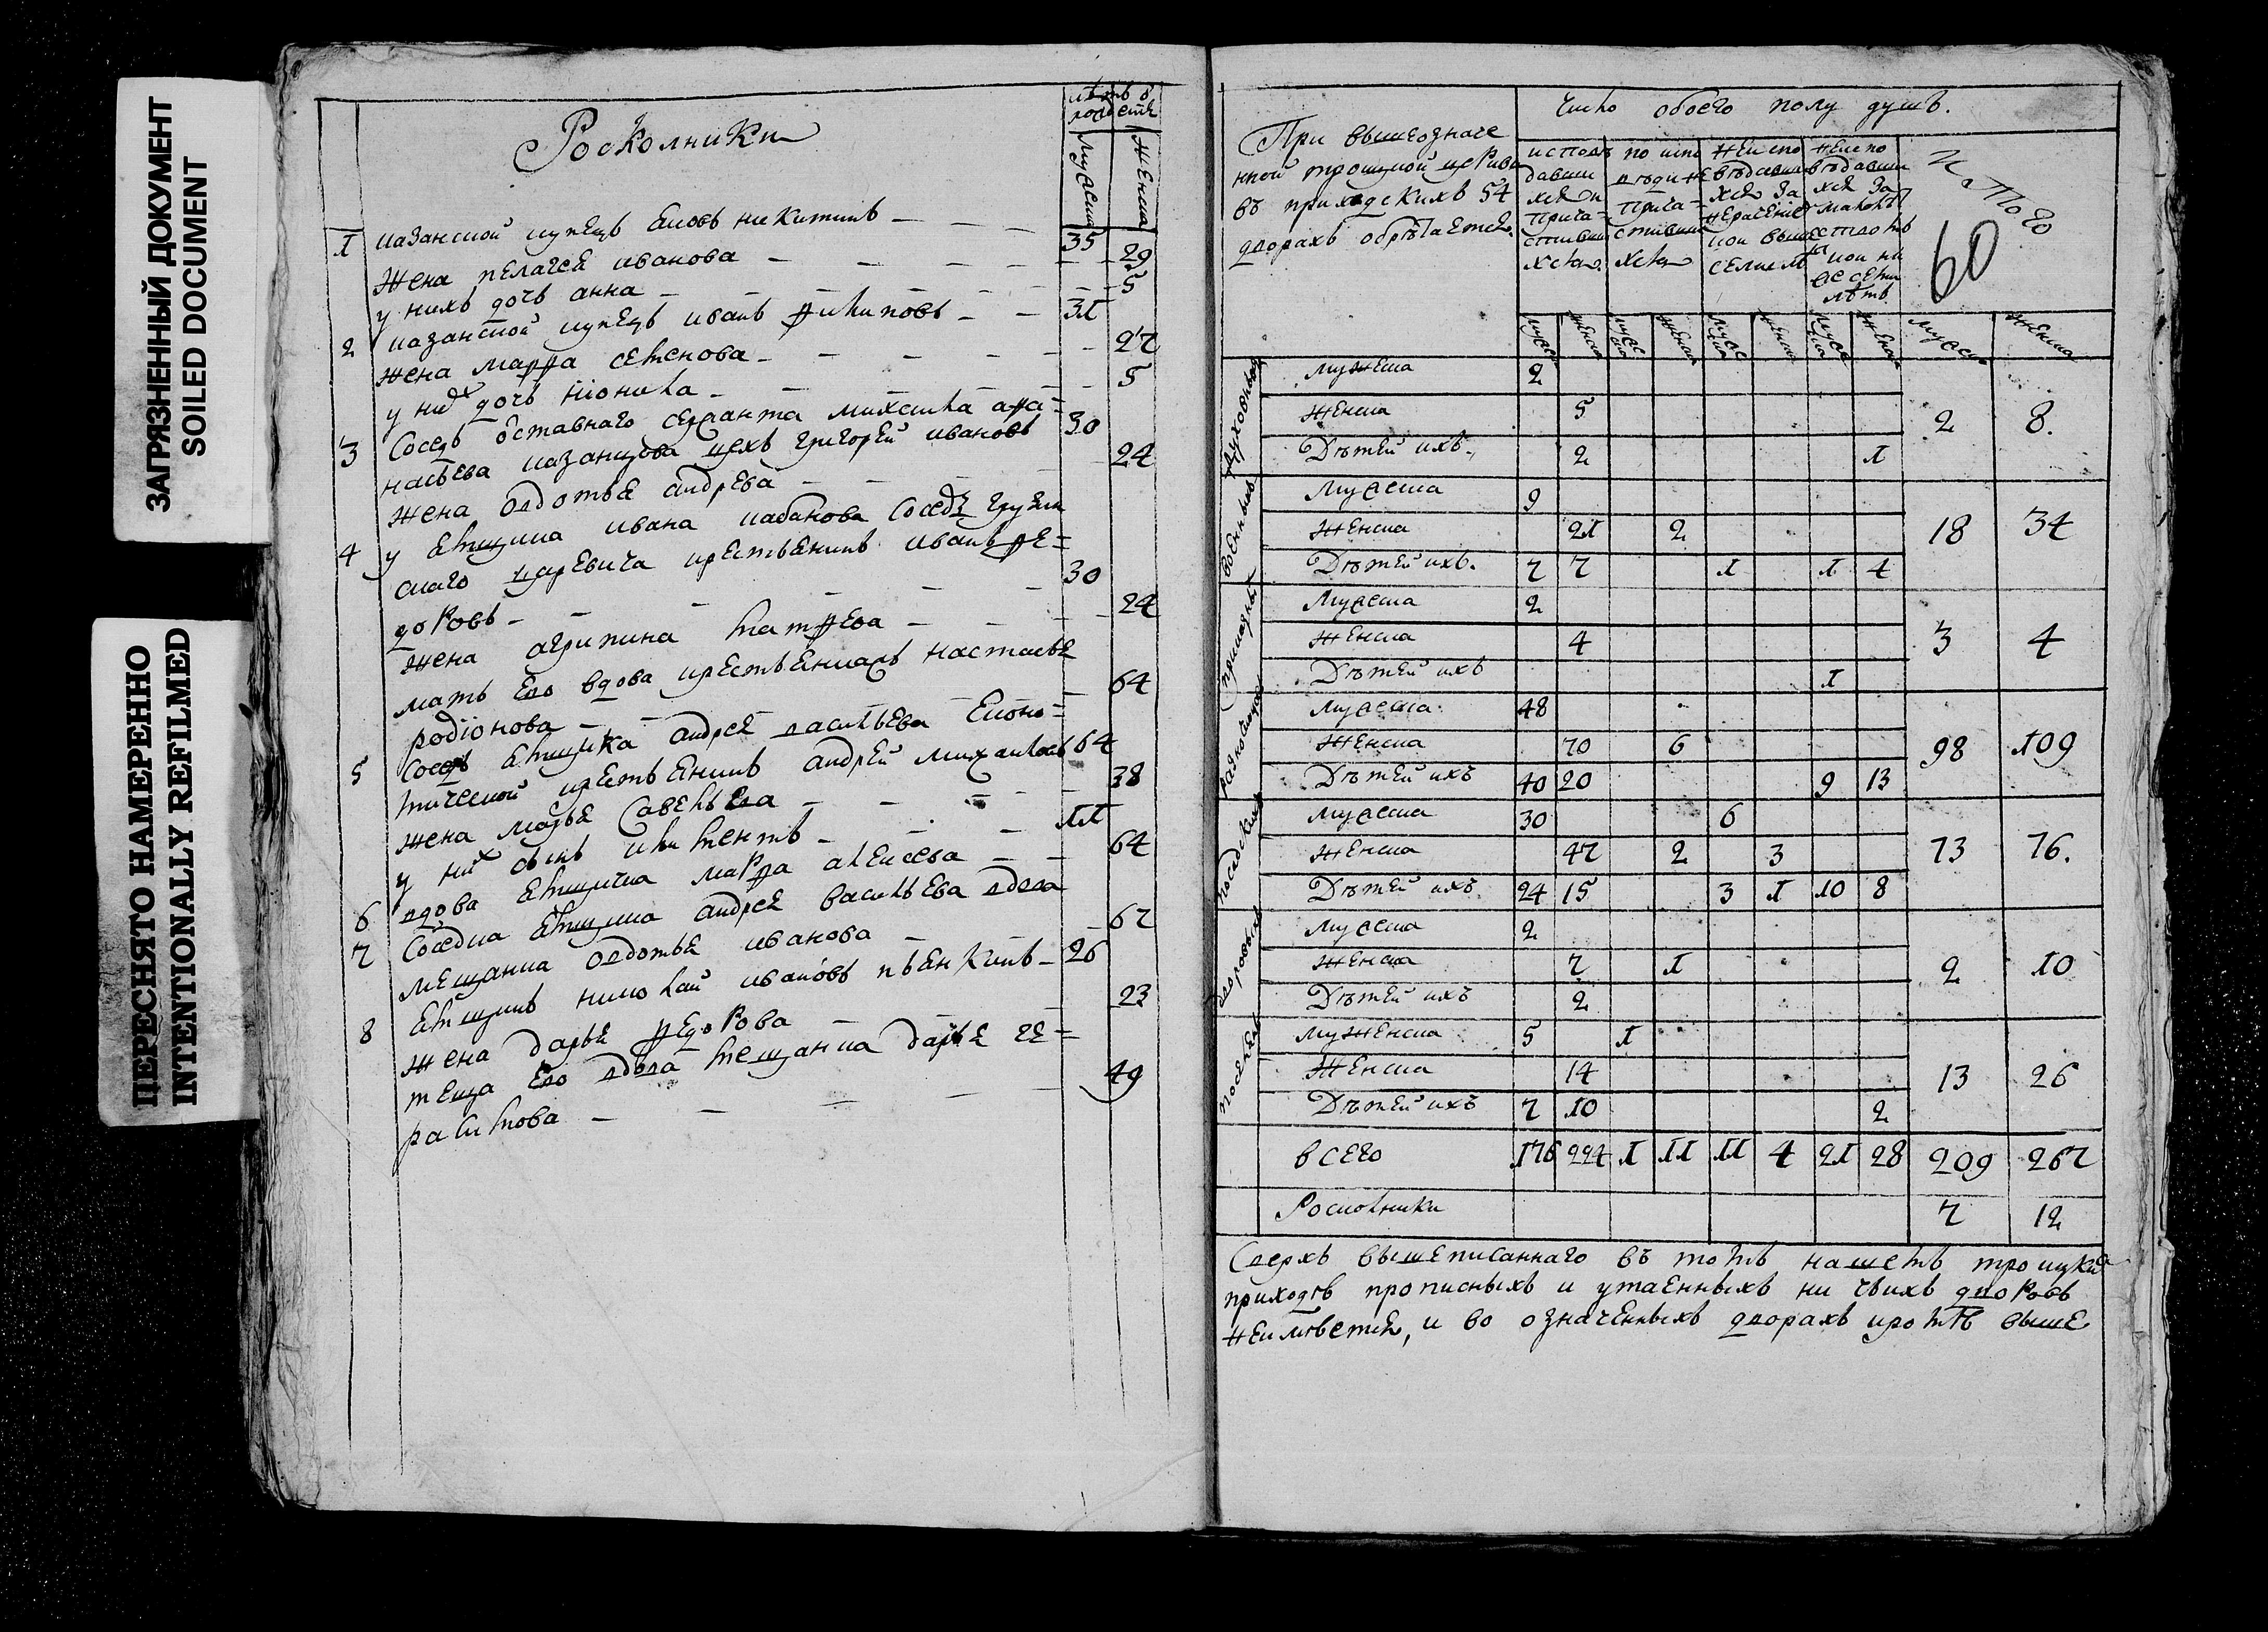 ЗАГРЯЗНЕННЫЙ ДОКУМЕНТ
SOILED DOCUMENT
ПЕРЕСНЯТО НАМЕРЕННО
INTENTIONALLY REFILMED
Росколники
мужеска
женска
1 казанской купецъ яковъ никитинъ 35
жена пелагея иванова 29
у нихъ дочь анна 5
2 казанской купецъ иванъ филиповъ 31
жена марфа семенова 27
у них дочь 5
3 Соседъ отставнаго сержанта михаила афа=
насьева казанцова цехъ григорей ивановъ 30
жена овдотья андрева 24
4 у ямщика ивана кабанова Соседъ грузин
скаго царевича крестьенинъ иванъ фе=
доровъ 30
жена агрипина матфева 24
мать ево вдова крестьенкаръ настасья
родіонова 64
5 Соседъ ямщика андрея васильева Еконо=
мической крестьенинъ андрей михаиловъ 64
жена марья Савельева 38
у них сынъ климентъ 11
6 вдова ямщичиха марфа алексева 64
7 Соседка ямщика андрея васильева вдова
мещанка овдотья иванова 67
8 ямщикъ николай ивановъ пьянкинъ 26
жена дарья федорова 23
теща ево вдова мещанка дарья ге=
расимова 49
При вышеозначе
нной троицкой церкви
въ приходскихъ 54
дворахъ обретается.
Число обоего полу душъ.
исповѣ
давши
хся и
прича-
стивши
хся
по испо
вѣди не
прича-
стивши
хся
неиспо
вѣдавши
хся за
нерачение
неиспо
вѣдавши
хся за
малолѣ
лѣтъ
Итого
60
духовныя
мужеска 2
женска 5
Дѣтей ихъ 2 1
2 8.
военныя
мужеска 9
женска 21 2
Дѣтей ихъ. 7 7 1 1 4
18 34
приказныя
мужеска 2
женска 4
Дѣтей ихъ 1
3 4
разночинцы
мужеска 48
женска 70 6
Дѣтей ихъ 40 20 9 13
98 109
посадския
мужеска 30 6
женска 47 2 3
Дѣтей ихъ 24 15 3 1 10 8
73 76.
дворовыя
мужеска 2
женска 7 1
Дѣтей ихъ 2
2 10
поселяне
мужеска 5 1
женска 14
Дѣтей ихъ 7 10 2
13 26
всего 176 224 1 11 11 4 21 28 209 267
Росколники 7 12
Сверхъ вышеписаннаго въ томъ нашемъ троицкий
приходѣ прописныхъ и утаенныхъ ни чьихъ дворовъ
неимѣется, и во означенныхъ дворахъ кромѣ выше